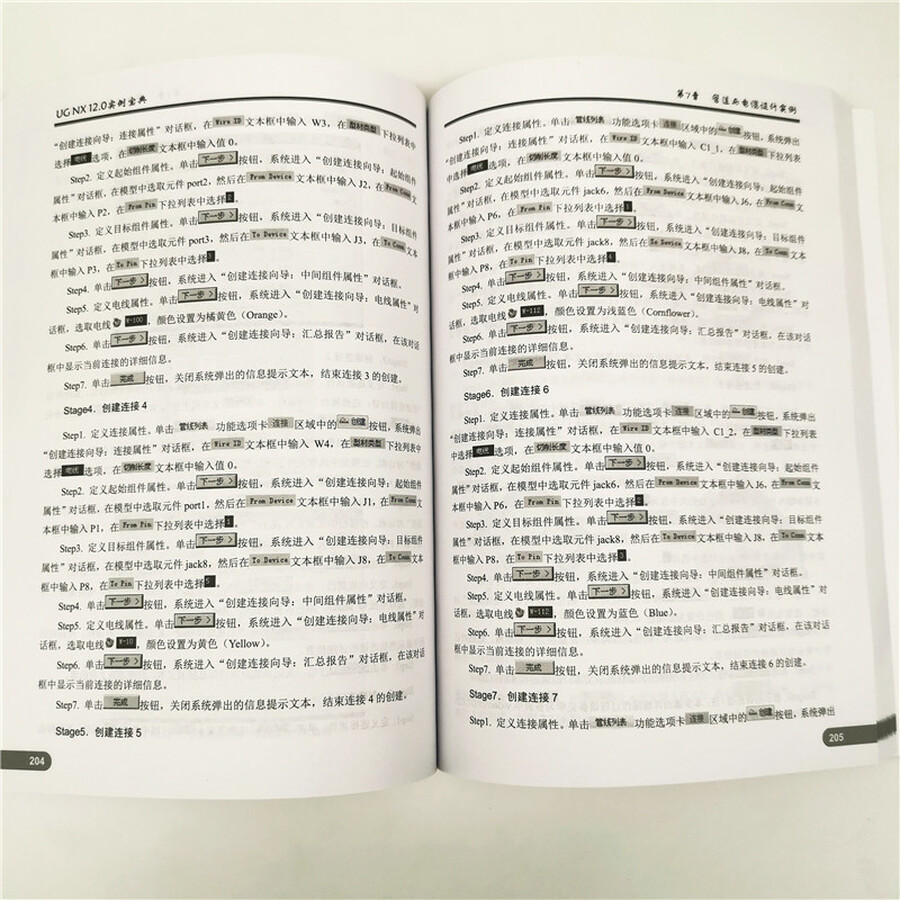 UG NX 12.0实例宝典
“创建连接向导：连接属性”对话框，在 Wire ID 文本框中输入 W3，在 型材类型 下拉列表中
选择 电线 选项，在 切削长度 文本框中输入值 0。
Step2. 定义起始组件属性。单击 下一步 > 按钮，系统进入“创建连接向导：起始组件
属性”对话框，在模型中选取元件 port2，然后在 From Device 文本框中输入 J2，在 From Conn 文
本框中输入 P2，在 From Pin 下拉列表中选择 2。
Step3. 定义目标组件属性。单击 下一步 > 按钮，系统进入“创建连接向导：目标组件
属性”对话框，在模型中选取元件 port3，然后在 To Device 文本框中输入 J3，在 To Conn 文本
框中输入 P3，在 To Pin 下拉列表中选择。
Step4. 单击 下一步 > 按钮，系统进入“创建连接向导：中间组件属性”对话框。
Step5. 定义电线属性。单击 下一步 > 按钮，系统进入“创建连接向导：电线属性”对
话框，选取电线 W-100，颜色设置为橘黄色（Orange）。
Step6. 单击 下一步 > 按钮，系统进入“创建连接向导：汇总报告”对话框，在该对话
框中显示当前连接的详细信息。
Step7. 单击 完成 按钮，关闭系统弹出的信息提示文本，结束连接 3 的创建。
Stage4. 创建连接 4
Step1. 定义连接属性。单击 管线列表 功能选项卡 连接 区域中的 创建 按钮，系统弹出
“创建连接向导：连接属性”对话框，在 Wire ID 文本框中输入 W4，在 型材类型 下拉列表中
选择 电线 选项，在 切削长度 文本框中输入值 0。
Step2. 定义起始组件属性。单击 下一步 > 按钮，系统进入“创建连接向导：起始组件
属性”对话框，在模型中选取元件 port1，然后在 From Device 文本框中输入 J1，在 From Conn 文
本框中输入 P1，在 From Pin 下拉列表中选择 1。
Step3. 定义目标组件属性。单击 下一步 > 按钮，系统进入“创建连接向导：目标组件
属性”对话框，在模型中选取元件 jack8，然后在 To Device 文本框中输入 J8，在 To Conn 文本
框中输入 P8，在 To Pin 下拉列表中选择 5。
Step4. 单击 下一步 > 按钮，系统进入“创建连接向导：中间组件属性”对话框。
Step5. 定义电线属性。单击 下一步 > 按钮，系统进入“创建连接向导：电线属性”对
话框，选取电线 W-10，颜色设置为黄色（Yellow）。
Step6. 单击 下一步 > 按钮，系统进入“创建连接向导：汇总报告”对话框，在该对话
框中显示当前连接的详细信息。
Step7. 单击 完成 按钮，关闭系统弹出的信息提示文本，结束连接 4 的创建，
Stage5. 创建连接 5
204
第7章 管道与电缆设计实例
Step1. 定义连接属性。单击 管线列表 功能选项卡 连接 区域中的 创建 按钮，系统弹出
“创建连接向导：连接属性”对话框，在 Wire ID 文本框中输入 C1_1，在 型材类型 下拉列表
中选择 电线 选项，在 切削长度 文本框中输入值 0。
Step2. 定义起始组件属性。单击 下一步 > 按钮，系统进入“创建连接向导：起始组件
属性”对话框，在模型中选取元件 jack6，然后在 From Device 文本框中输入 J6，在 From Conn 文
本框中输入 P6，在 From Pin 下拉列表中选择 1。
Step3. 定义目标组件属性。单击 下一步 > 按钮，系统进入“创建连接向导：目标组件
属性”对话框，在模型中选取元件 jack8，然后在 To Device 文本框中输入 J8，在 To Conn 文本
框中输入 P8，在 To Pin 下拉列表中选择。
Step4. 单击 下一步 > 按钮，系统进入“创建连接向导：中间组件属性”对话框。
Step5. 定义电线属性。单击 下一步 > 按钮，系统进入“创建连接向导：电线属性”对
话框，选取电线 W-112，颜色设置为浅蓝色（Cornflower）。
Step6. 单击 下一步 > 按钮，系统进入“创建连接向导：汇总报告”对话框，在该对话
框中显示当前连接的详细信息。
Step7. 单击 完成 按钮，关闭系统弹出的信息提示文本，结束连接 5 的创建。
Stage6. 创建连接 6
Step1. 定义连接属性。单击 管线列表 功能选项卡 连接 区域中的 创建 按钮，系统弹出
“创建连接向导：连接属性”对话框，在 Wire ID 文本框中输入 C1_2，在 型材类型 下拉列表
中选择 电线 选项，在 切削长度 文本框中输入值 0。
Step2. 定义起始组件属性。单击 下一步 > 按钮，系统进入“创建连接向导：起始组件
属性”对话框，在模型中选取元件 jack6，然后在 From Device 文本框中输入 J6，在 From Conn 文
本框中输入 P6，在 From Pin 下拉列表中选择 2。
Step3. 定义目标组件属性。单击 下一步 > 按钮，系统进入“创建连接向导：目标组件
属性”对话框，在模型中选取元件 jack8，然后在 To Device 文本框中输入 J8，在 To Conn 文本
框中输入 P8，在 To Pin 下拉列表中选择 3。
Step4. 单击 下一步 > 按钮，系统进入“创建连接向导：中间组件属性”对话框。
Step5. 定义电线属性。单击 下一步 > 按钮，系统进入“创建连接向导：电线属性”对
话框，选取电线 W-112，颜色设置为蓝色（Blue）。
Step6. 单击 下一步 > 按钮，系统进入“创建连接向导：汇总报告”对话框，在该对话
框中显示当前连接的详细信息。
Step7. 单击 完成 按钮，关闭系统弹出的信息提示文本，结束连接 6 的创建。
Stage7. 创建连接 7
Step1. 定义连接属性。单击 管线列表 功能选项卡 连接 区域中的 创建 按钮，系统弹出
205